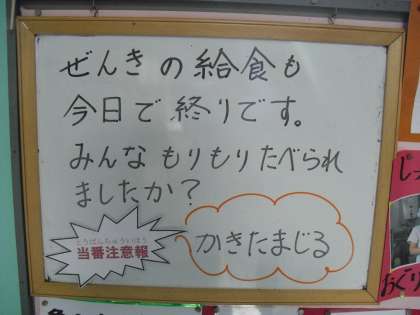 ぜんきの給食も
今日で終りです。
みんなもりもりたべられ
ましたか?
とうばんちゅういほう
当番注意報
かきたまじる
じっ
おぐり